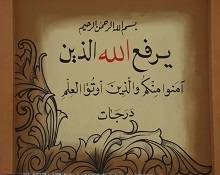 بسم الله الرحمن الرحيم
يرفع الله الذين
آمنوا منكم والذين أوتوا العلم
درجات